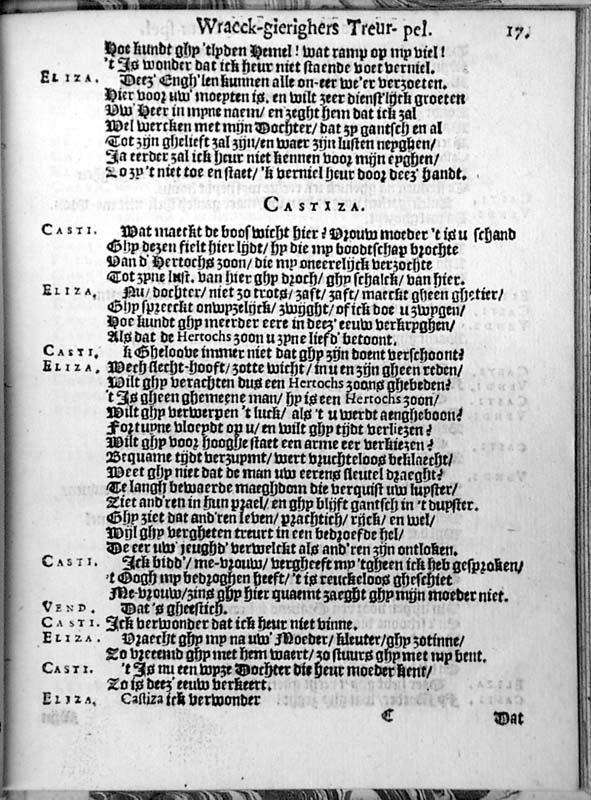 Wraeck-gierighers Treur- pel. 17.
Hoe kundt ghy 'tlyden Hemel! wat ramp op my viel!
't Is wonder dat ick heur niet staende voet verniel.
ELIZA. Deez' Engh'len kunnen alle on-eer we'er verzoeten.
Hier voor uw' moeyten is, en wilt zeer dienst'lijck groeten
Uw' Heer in myne naem/ en zeght hem dat ick zal
Wel wercken met mijn Dochter/ dat zy gantsch en al
Tot zijn ghelieft zal zijn/ en waer zijn lusten neyghen/
Ja eerder zal ick heur niet kennen voor mijn eyghen/
Zo zy't niet toe en staet/ 'k verniel heur door deez' handt.
CASTIZA.
CASTI. Wat maeckt de boos wicht hier? Vrouw moeder 't is u schand
Ghy dezen fielt hier lijdt/ hy die my boodtschap brochte
Van d' Hertochs zoon/ die my oneerelijck verzochte
Tot zyne lust. van hier ghy droch/ ghy schalck/ van hier.
ELIZA. Nu/ dochter/ niet zo trots/ zaft/ zaft/ maeckt gheen ghetier/
Ghy spreeckt onwyzelijck/ zwijght/ of ick doe u zwygen/
Hoe kundt ghy meerder eere in deez' eeuw verkryghen/
Als dat de Hertochs zoon u zyne liefd' betoont.
CASTI. k Gheloove immer niet dat ghy zijn doent verschoont?
ELIZA. Wech slecht-hooft/ zotte wicht/ in u en zijn gheen reden/
Wilt ghy verachten dus een Hertochs zoons ghebeden?
't Is gheen ghemeyne man/ hy is een Hertochs zoon/
Wilt ghy verwerpen 't luck/ als 't u werdt aengheboon?
Fortuyne vloeydt op u/ en wilt ghy tijdt verliezen?
Wilt ghy voor hooghe staet een arme eer verkiezen?
Bequame tijdt verzuymt/ wert vruchteloos beklaecht/
Weet ghy niet dat de man uw eerens sleutel draeght?
Te langh bewaerde maeghdom die verquist uw luyster/
Ziet and'ren in hun prael/ en ghy blijft gantsch in 't duyster.
Ghy ziet dat and'ren leven/ prachtich/ rijck/ en wel/
Wijl ghy vergheten treurt in een bedroefde hel/
De eer uw' jeughd' verwelckt als and'ren zijn ontloken.
CASTI. Ick bidd'/ me-vrouw/ vergheeft my 'tgheen ick heb gesproken/
't Oogh my bedroghen heeft/ 't is reuckeloos gheschiet
Me-vrouw/ zins ghy hier quaemt zaeght ghy mijn moeder niet.
VEND. Dat 's gheestich.
CASTI. Ick verwonder dat ick heur niet vinne.
ELIZA. Vraecht ghy my na uw' Moeder/ kleuter/ ghy zotinne/
Zo vreemd ghy met hem waert/ zo stuurs ghy met my bent.
CASTI. 't Is nu een wyze Dochter die heur moeder kent/
Zo is deez' eeuw verkeert.
ELIZA. Castiza ick verwonder
C Dat